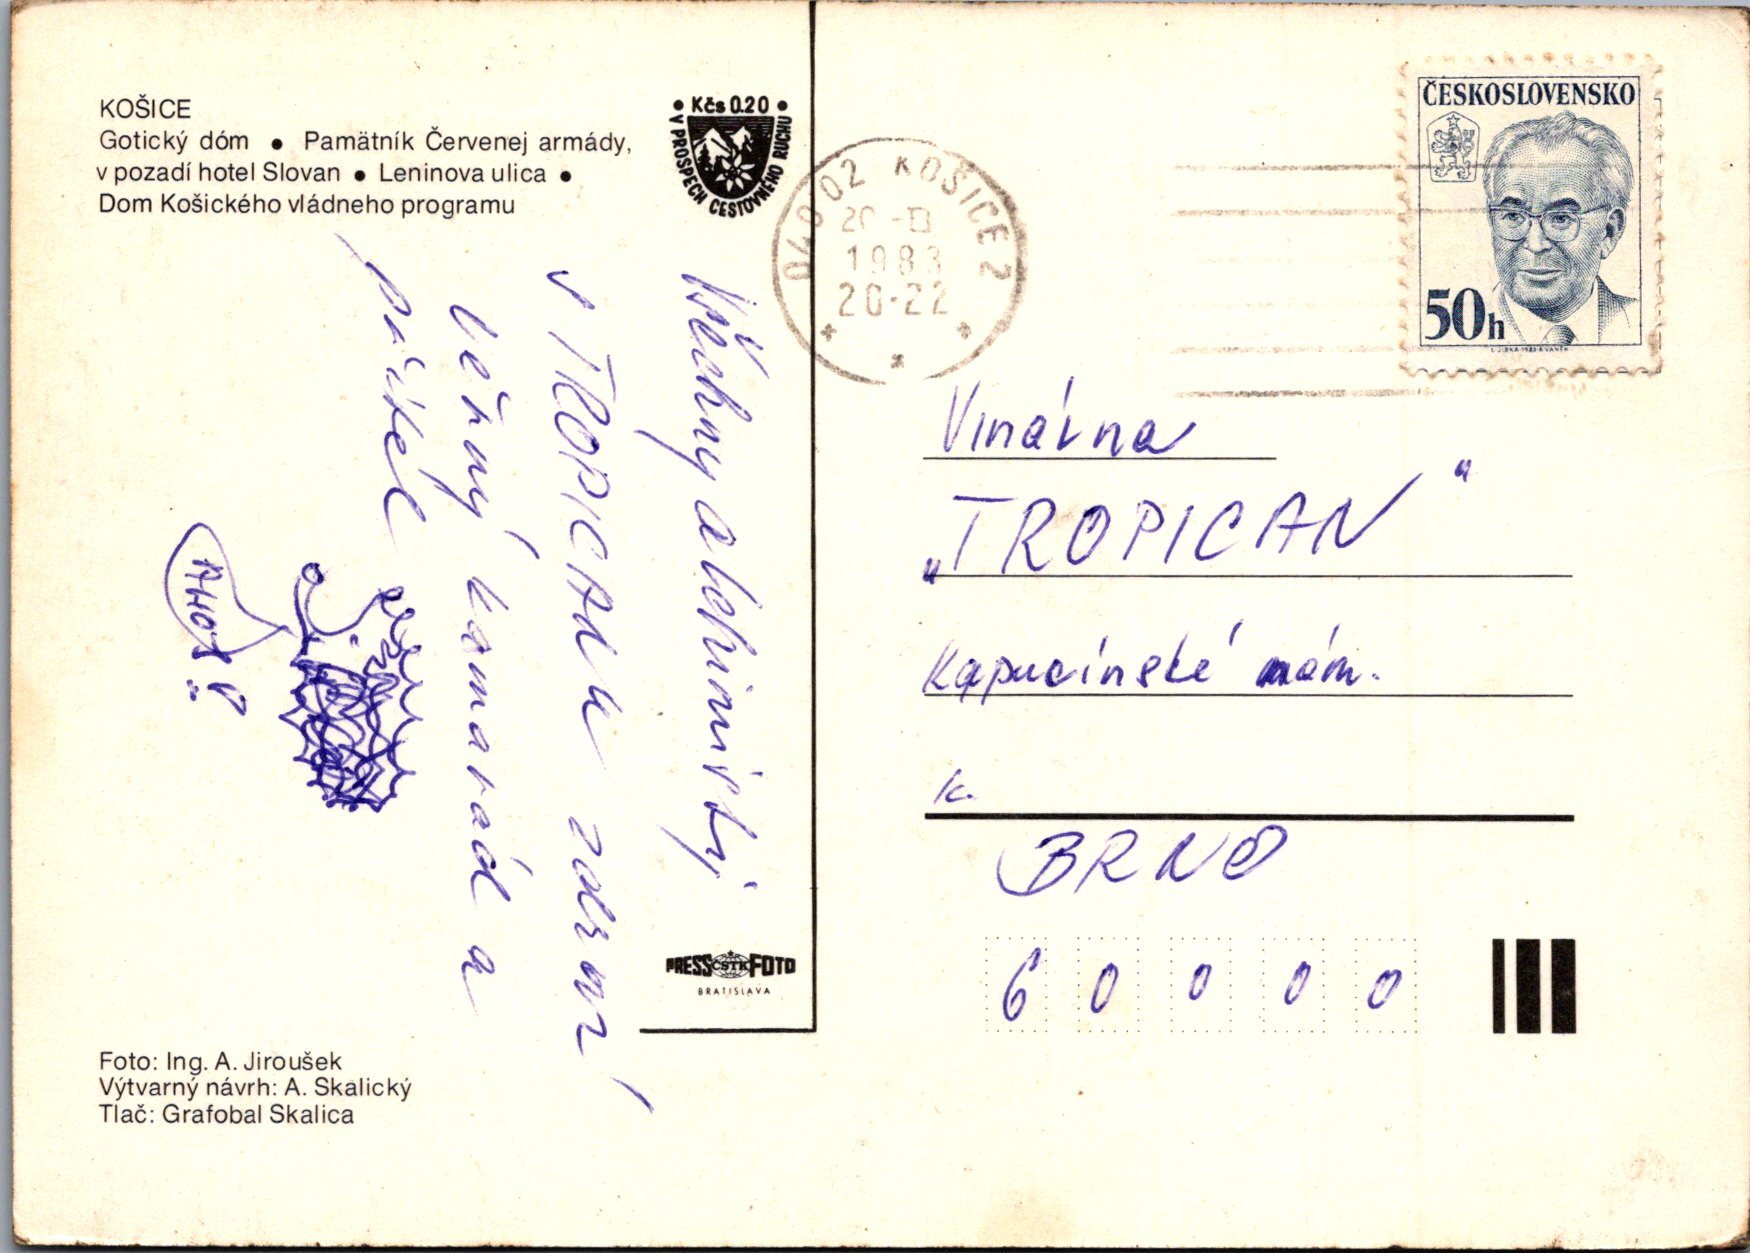 KOŠICE
Gotický dóm • Pamätník Červenej armády,
v pozadí hotel Slovan • Leninova ulica •
Dom Košického vládneho programu
• Kčs 0.20 •
V PROSPECH CESTOVNÉHO RUCHU
Všechny alchimisty
v TROPICANu zdraví
věčný kamarád a
přítel
AHOJ!
PRESS ČSTK FOTO
BRATISLAVA
Foto: Ing. A. Jiroušek
Výtvarný návrh: A. Skalický
Tlač: Grafobal Skalica
04002 KOŠICE 2
1983
20-22
ČESKOSLOVENSKO
50h
Vinárna
„TROPICAN“
Kapucínské nám.
BRNO
60000